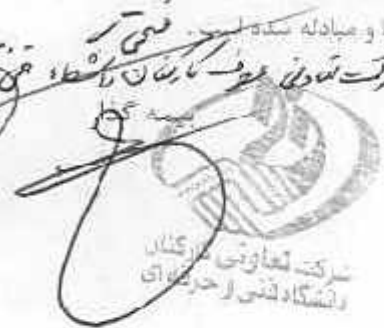 و مبادله شده است.
شرکت تعاونی مصرف کارکنان دانشگاه
بیمه گذار
شرکت تعاونی کارکنان
دانشگاه فنی و حرفه ای